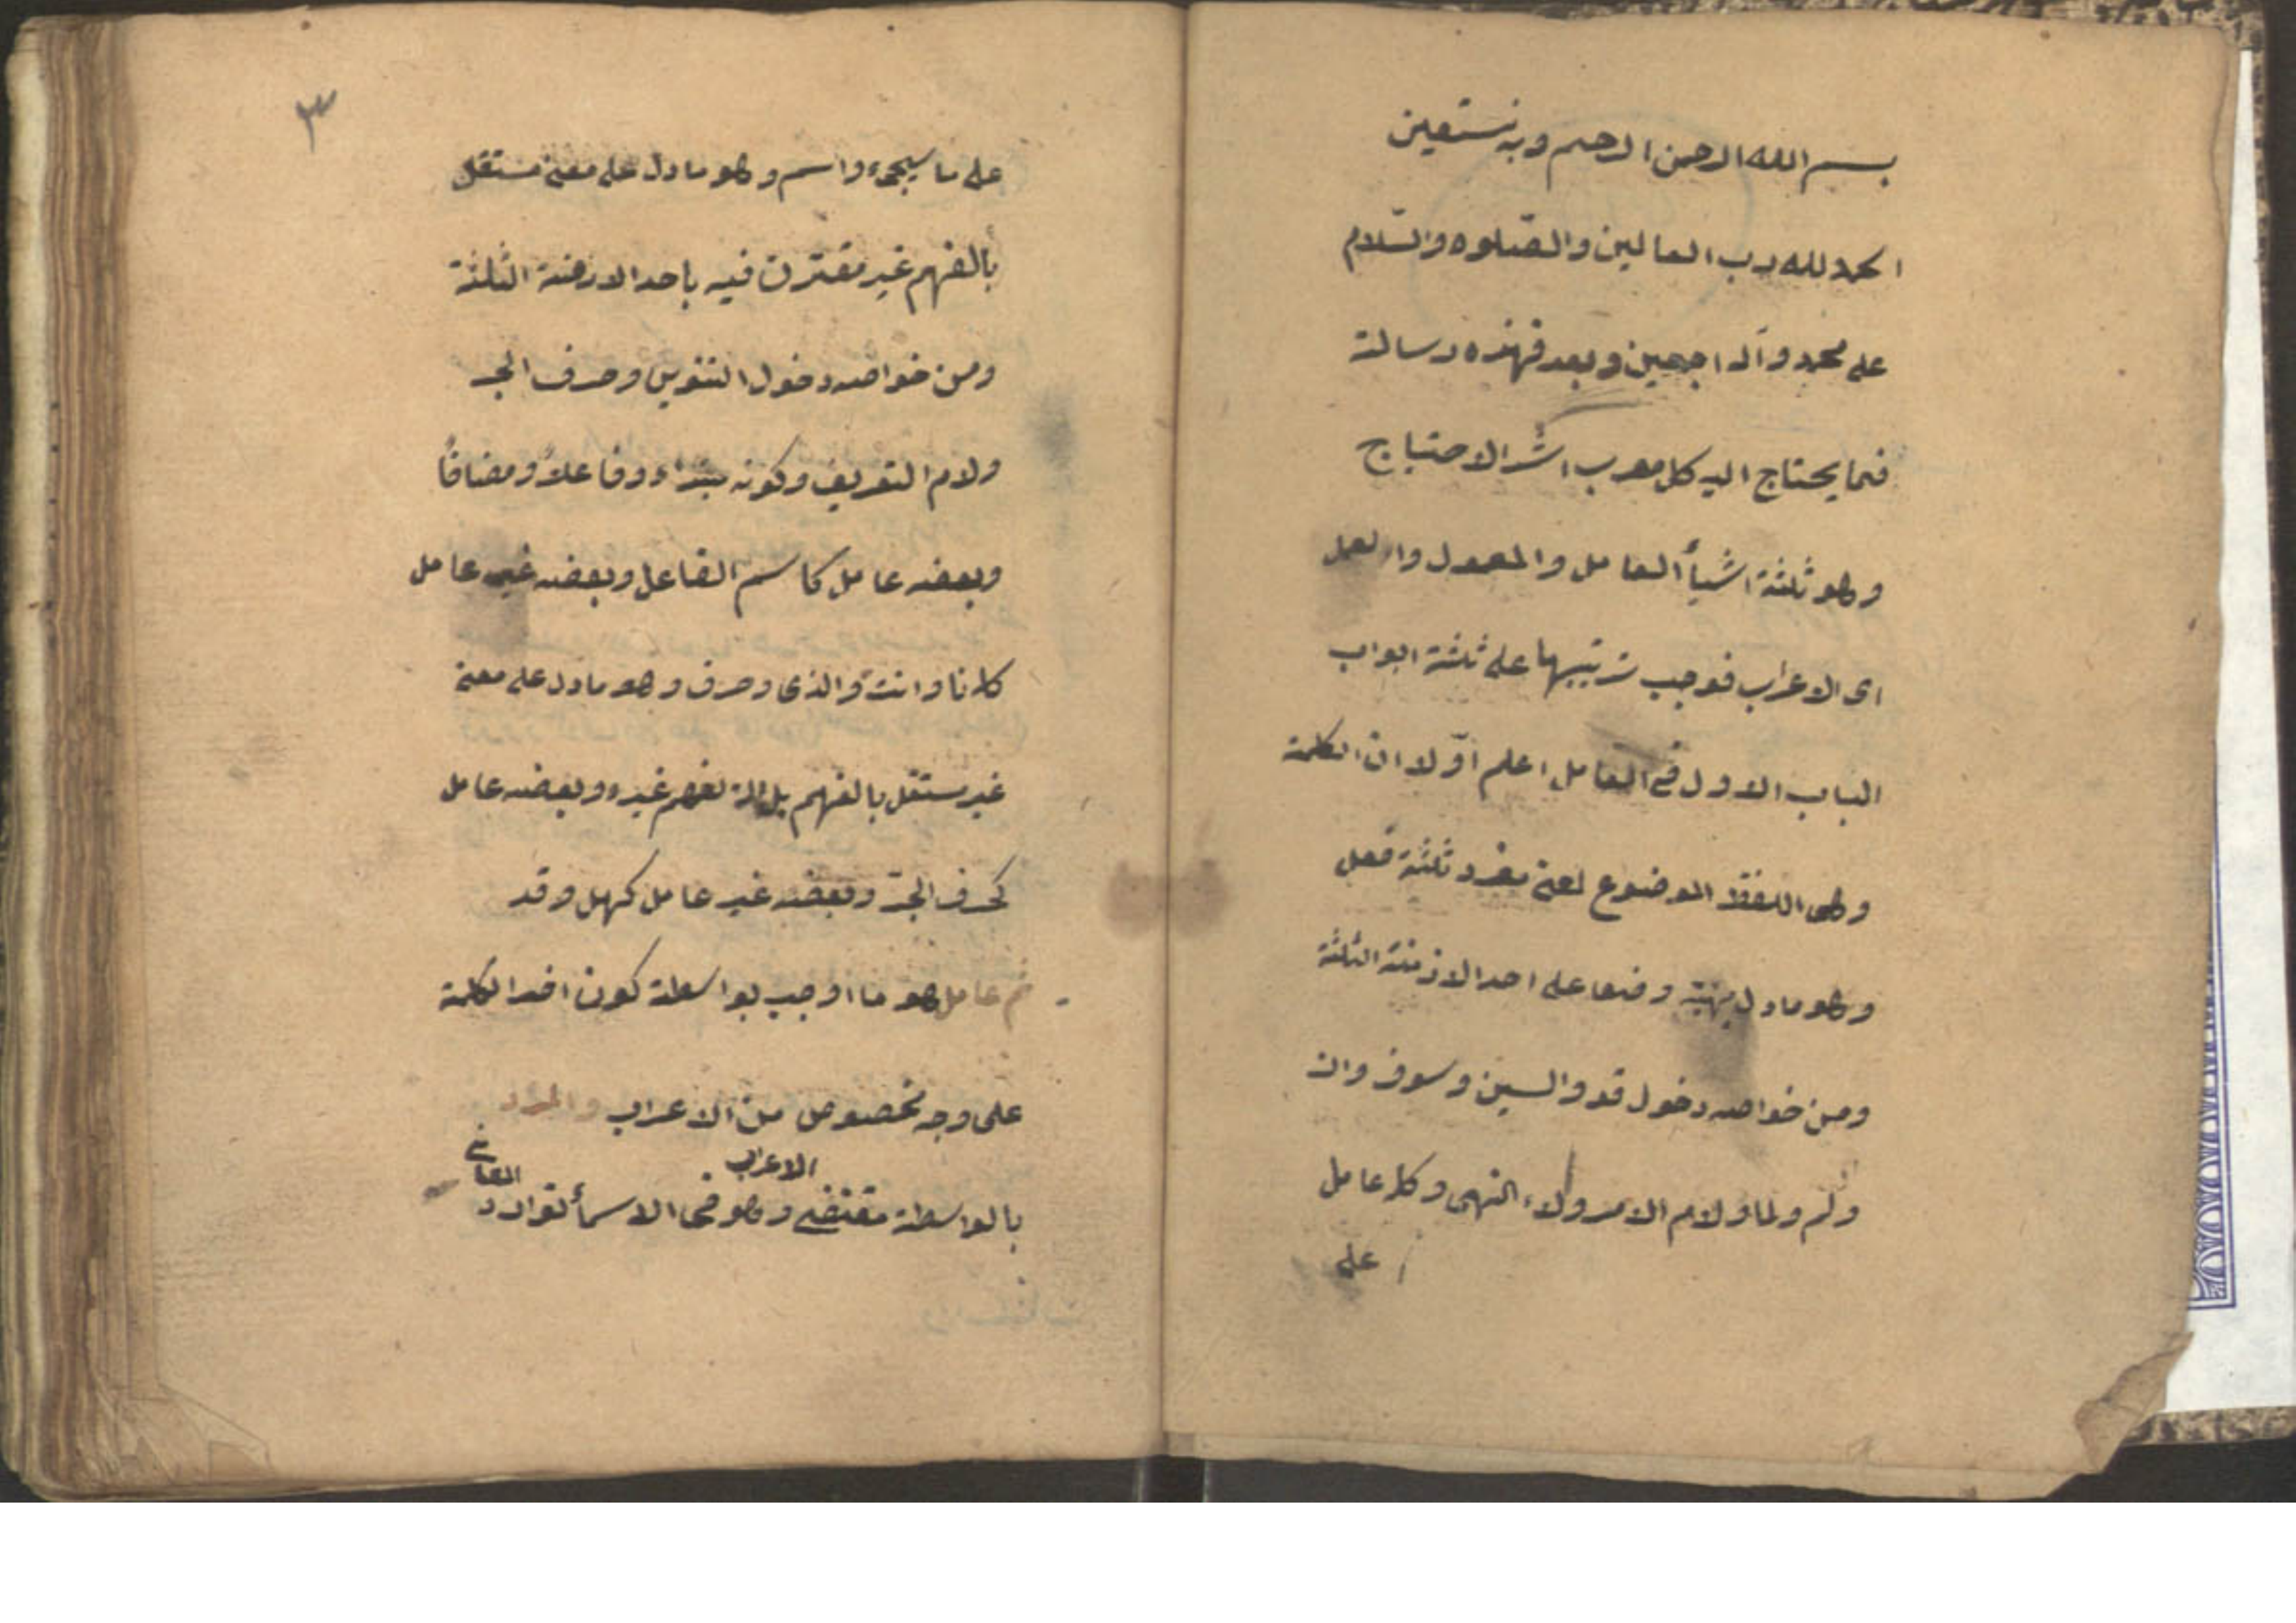 بسم الله الرحمن الرحيم وبه نستعين
الحمد لله رب العالمين والصّلوه والسّلام
على محمد وآله اجمعين وبعد فهذه رسالة
فيما يحتاج اليه كل معرب اشدّ الاحتياج
وهو ثلثة اشيأ العامل والمعمول والعمل
اى الاعراب فوجب ترتيبها على ثلثة ابواب
الباب الاول فى العامل اعلم اوّلا ان الكلمة
وهى اللفظ الموضوع لمعنى مفرد ثلثة فعل
وهو ما دل بهيئته وضعا على احد الازمنة الثلثة
ومن خواصه دخول قد والسين وسوف وان
ولم ولما ولام الامر ولاء النهى وكله عامل
على
٣
على ما سيجىء واسم وهو ما دل على معنى مستقل
بالفهم غير مقترن فيه باحد الازمنة الثلثة
ومن خواصه دخول التنوين وحرف الجر
ولام التعريف وكونه مبتداء وفاعلاً ومضافاً
وبعضه عامل كاسم الفاعل وبعضه غير عامل
كانا وانت والذى وحرف وهو ما دل على معنى
غير مستقل بالفهم بل الة لفهم غيره وبعضه عامل
كحرف الجرّ وبعضه غير عامل كهل وقد
ثم عامل هو ما اوجب بواسطة كون اخر الكلمة
على وجه مخصوص من الاعراب والمراد
بالواسطة مقتضى الاعراب وهو فى الاسمأ توارد المعانى